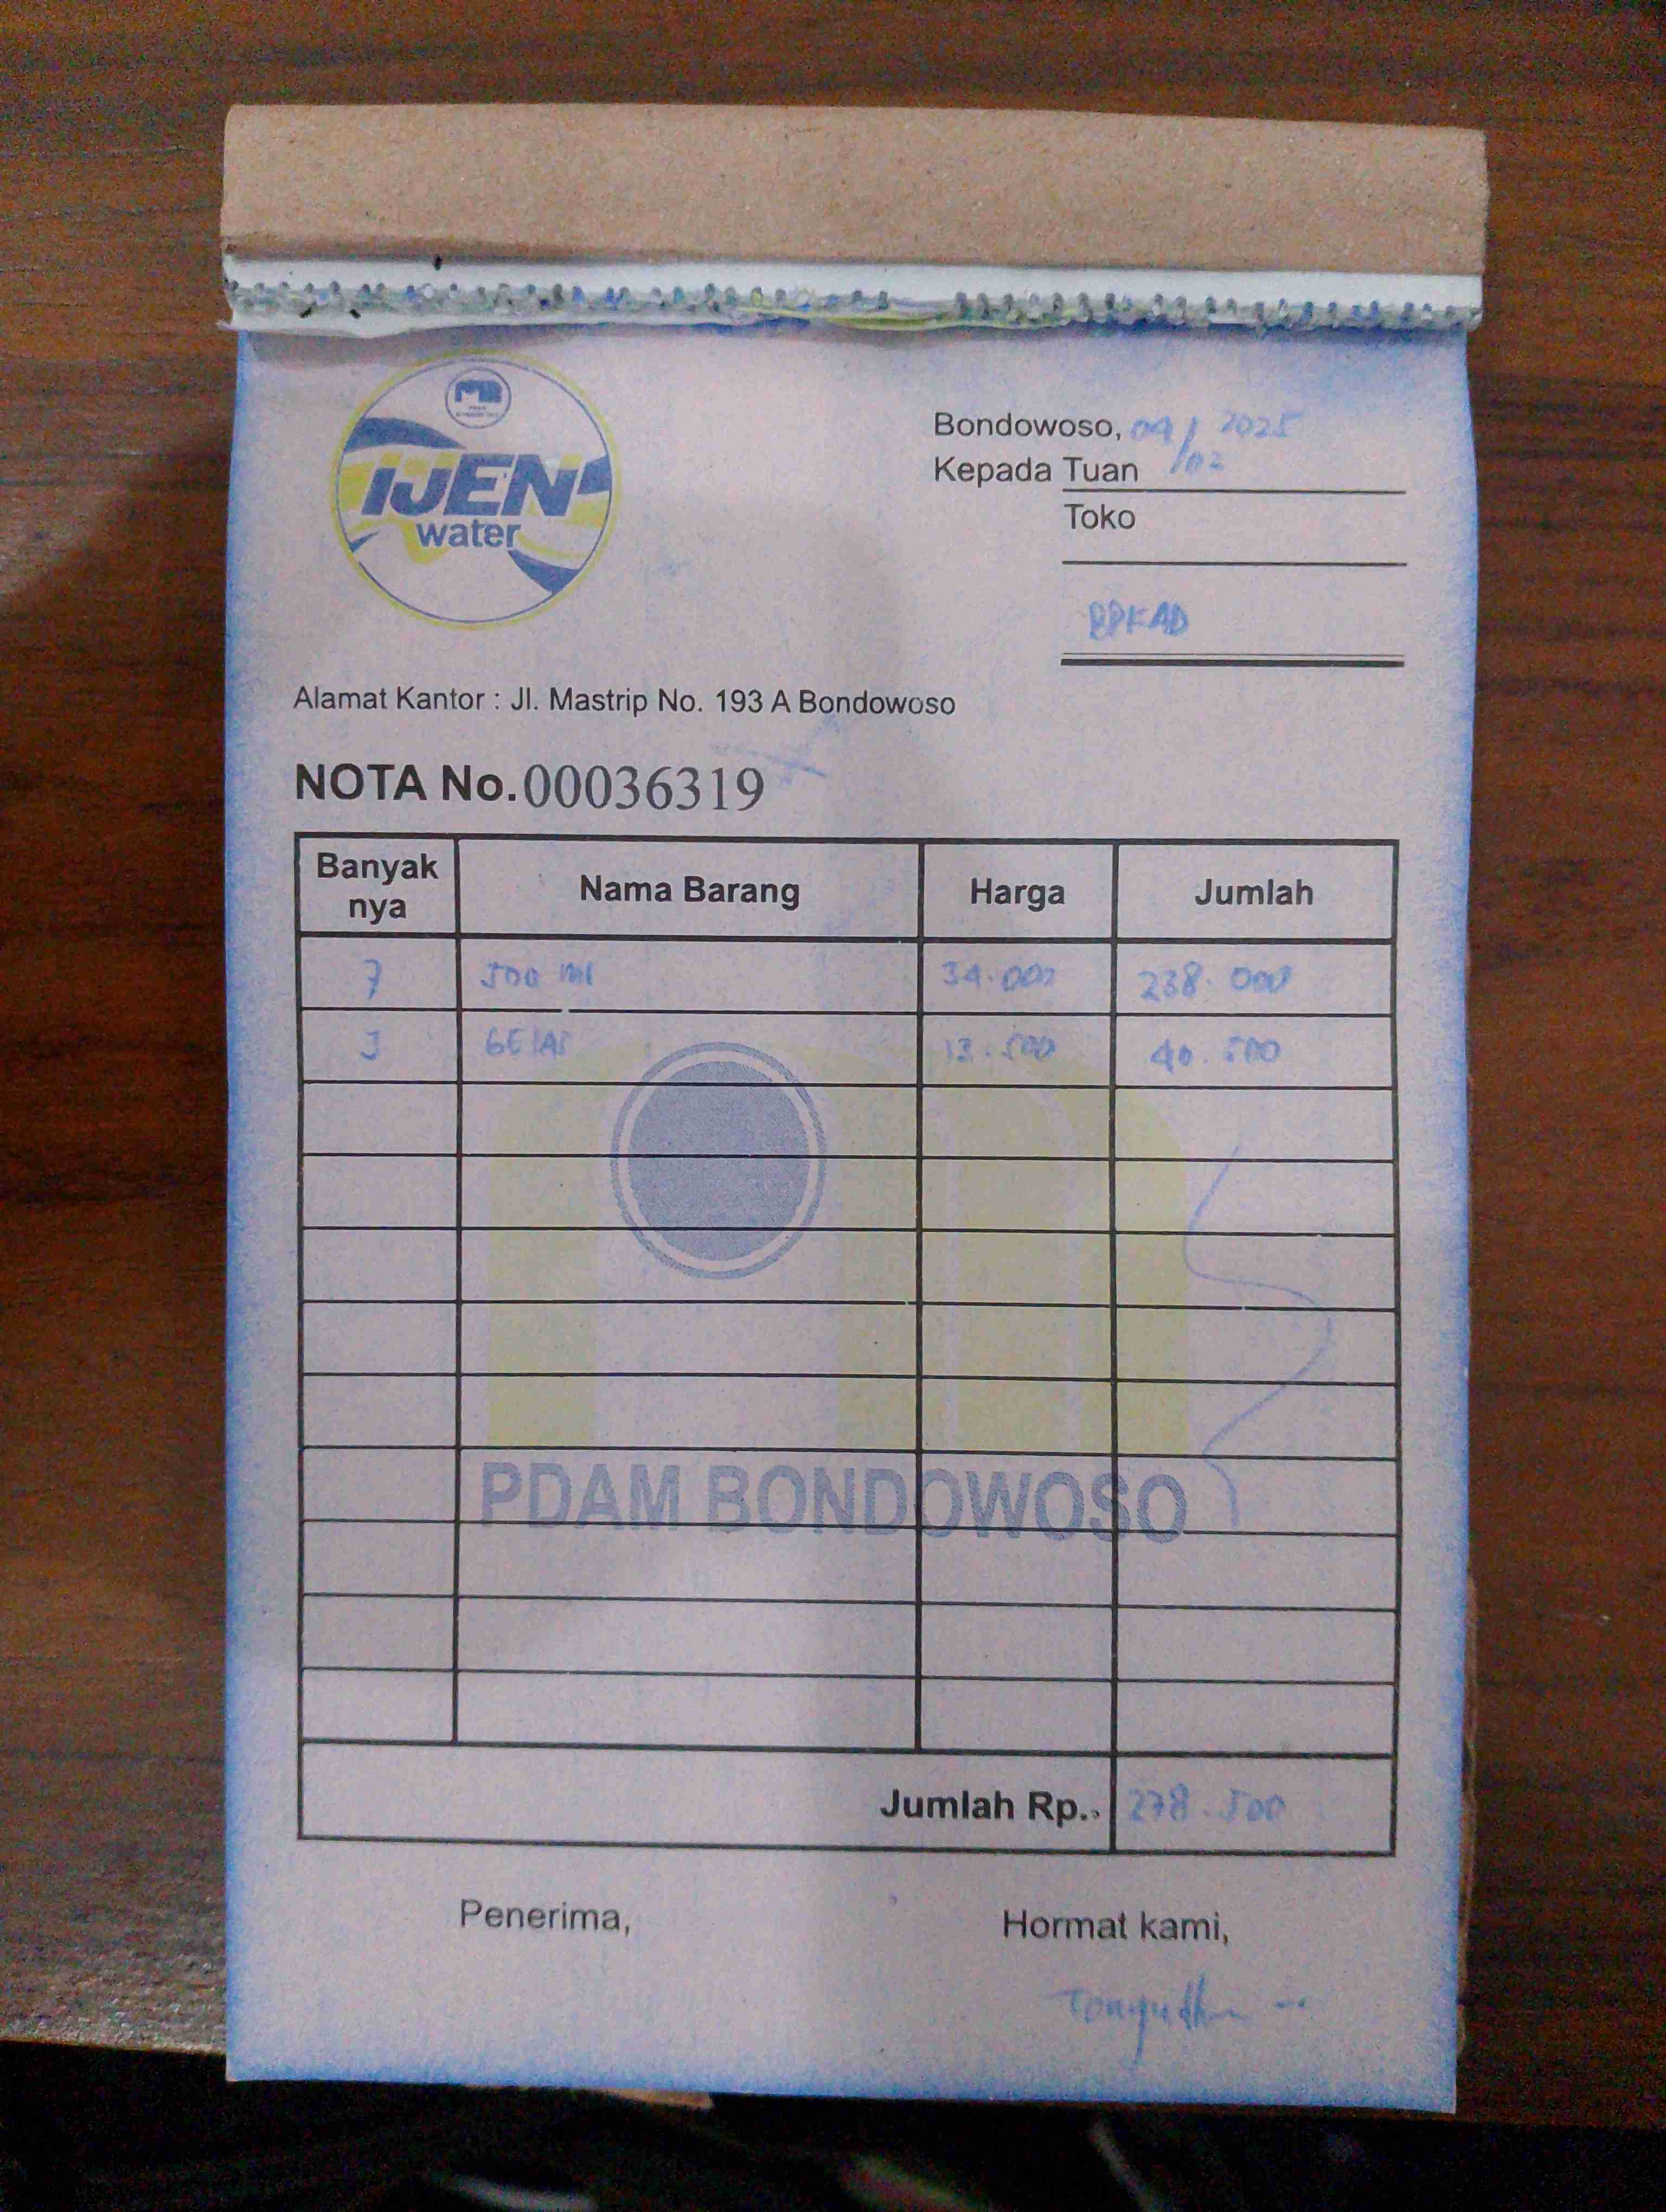 IJEN
water
Bondowoso, 04/02 2025
Kepada Tuan
Toko
BPKAD
Alamat Kantor : Jl. Mastrip No. 193 A Bondowoso
NOTA No. 00036319
Banyak nya Nama Barang Harga Jumlah
7 500 ml 34.000 238.000
3 GELAS 13.500 40.500
PDAM BONDOWOSO
Jumlah Rp.. 278.500
Penerima, Hormat kami,